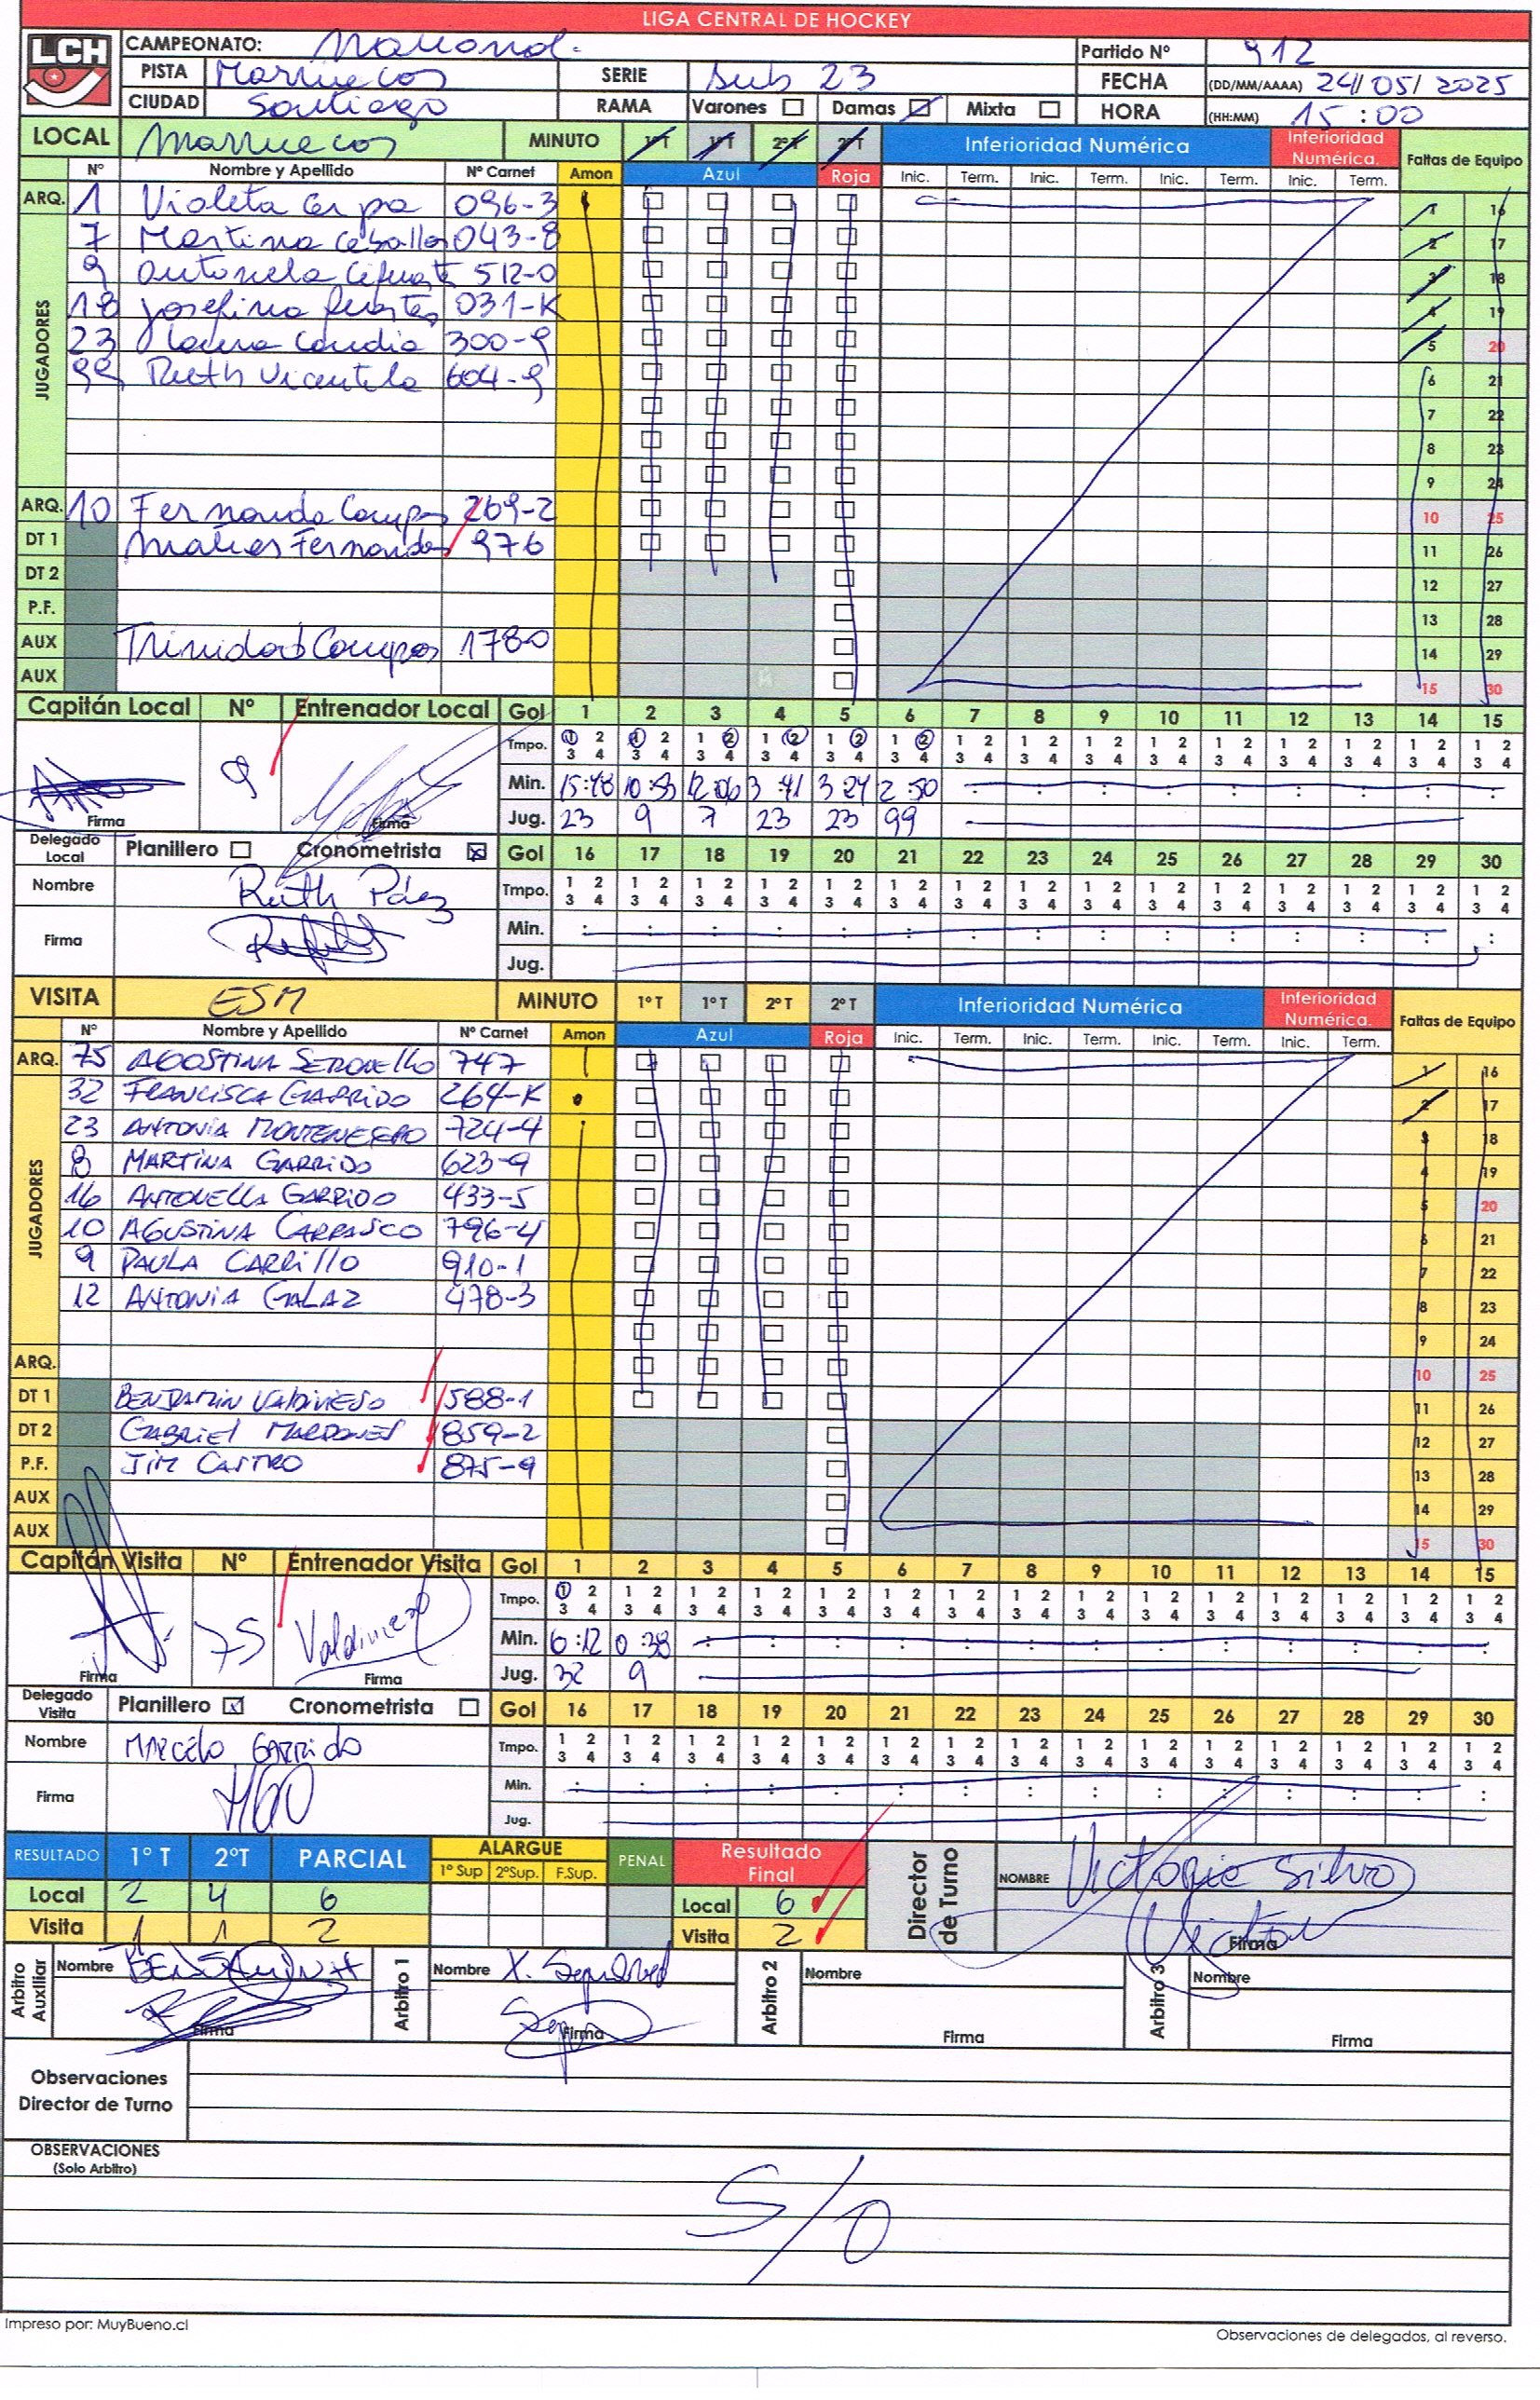 LIGA CENTRAL DE HOCKEY
LCH
CAMPEONATO: Nacional. Partido Nº 912
PISTA Marruecos SERIE Sub 23 FECHA (DD/MM/AAAA) 24/05/2025
CIUDAD Santiago RAMA Varones Damas Mixta HORA (HH:MM) 15:00
LOCAL Marruecos MINUTO 1ºT 1ºT 2ºT 2ºT Inferioridad Numérica Inferioridad Numérica. Faltas de Equipo
Nº Nombre y Apellido Nº Carnet Amon Azul Roja Inic. Term. Inic. Term. Inic. Term. Inic. Term.
JUGADORES
ARQ. 1 Violeta Cerpa 096-3 1 16
7 Martina Ceballo 043-8 2 17
9 Antonela Cifuente 512-0 3 18
18 Josefina 031-K 4 19
23 Candia 300-9 5 20
99 Ruth Vicentela 604-9 6 21
7 22
8 23
9 24
ARQ. 10 Fernanda Campos 269-2 10 25
DT 1 Matias Fernandez 976 11 26
DT 2 12 27
P.F. 13 28
AUX Trinidad Campos 178-0 14 29
AUX 15 30
Capitán Local Nº Entrenador Local Gol 1 2 3 4 5 6 7 8 9 10 11 12 13 14 15
Tmpo. 1 2 3 4 1 2 3 4 1 2 3 4 1 2 3 4 1 2 3 4 1 2 3 4 1 2 3 4 1 2 3 4 1 2 3 4 1 2 3 4 1 2 3 4 1 2 3 4 1 2 3 4 1 2 3 4 1 2 3 4
9 Min. 15:48 10:53 12:06 3:41 3 24 2:50
Firma Firma Jug. 23 9 7 23 23 99
Delegado Local Planillero Cronometrista Gol 16 17 18 19 20 21 22 23 24 25 26 27 28 29 30
Nombre Ruth Páez Tmpo. 1 2 3 4 1 2 3 4 1 2 3 4 1 2 3 4 1 2 3 4 1 2 3 4 1 2 3 4 1 2 3 4 1 2 3 4 1 2 3 4 1 2 3 4 1 2 3 4 1 2 3 4 1 2 3 4 1 2 3 4
Firma Min.
Jug.
VISITA ESM MINUTO 1ºT 1ºT 2ºT 2ºT Inferioridad Numérica Inferioridad Numérica. Faltas de Equipo
Nº Nombre y Apellido Nº Carnet Amon Azul Roja Inic. Term. Inic. Term. Inic. Term. Inic. Term.
JUGADORES
ARQ. 75 AGOSTINA 747 1 16
32 FRANCISCA GARRIDO 264-K 2 17
23 ANTONIA MONTENEGRO 724-4 3 18
8 MARTINA GARRIDO 623-9 4 19
16 ANTONELLA GARRIDO 433-5 5 20
10 AGUSTINA CARRASCO 796-4 6 21
9 PAULA CARRILLO 910-1 7 22
12 ANTONIA GALAZ 478-3 8 23
9 24
ARQ. 10 25
DT 1 BENJAMIN VALDIVIESO 588-1 11 26
DT 2 GABRIEL MARDONES 859-2 12 27
P.F. JIM CASTRO 875-9 13 28
AUX 14 29
AUX 15 30
Capitán Visita Nº Entrenador Visita Gol 1 2 3 4 5 6 7 8 9 10 11 12 13 14 15
Tmpo. 1 2 3 4 1 2 3 4 1 2 3 4 1 2 3 4 1 2 3 4 1 2 3 4 1 2 3 4 1 2 3 4 1 2 3 4 1 2 3 4 1 2 3 4 1 2 3 4 1 2 3 4 1 2 3 4 1 2 3 4
75 Valdivieso Min. 6:12 0:38
Firma Firma Jug. 32 9
Delegado Visita Planillero Cronometrista Gol 16 17 18 19 20 21 22 23 24 25 26 27 28 29 30
Nombre MARCELO GARRIDO Tmpo. 1 2 3 4 1 2 3 4 1 2 3 4 1 2 3 4 1 2 3 4 1 2 3 4 1 2 3 4 1 2 3 4 1 2 3 4 1 2 3 4 1 2 3 4 1 2 3 4 1 2 3 4 1 2 3 4 1 2 3 4
Firma Min.
Jug.
RESULTADO 1º T 2ºT PARCIAL ALARGUE 1º Sup 2ºSup. F.Sup. PENAL Resultado Final Director de Turno NOMBRE Victoria Silva
Local 2 4 6 Local 6
Visita 1 1 2 Visita 2 Firma
Arbitro Auxiliar Nombre Arbitro 1 Nombre X. Sepulved Arbitro 2 Nombre Arbitro 3 Nombre
Firma Firma Firma Firma
Observaciones Director de Turno
OBSERVACIONES
(Solo Arbitro)
S/O
Impreso por: MuyBueno.cl
Observaciones de delegados, al reverso.